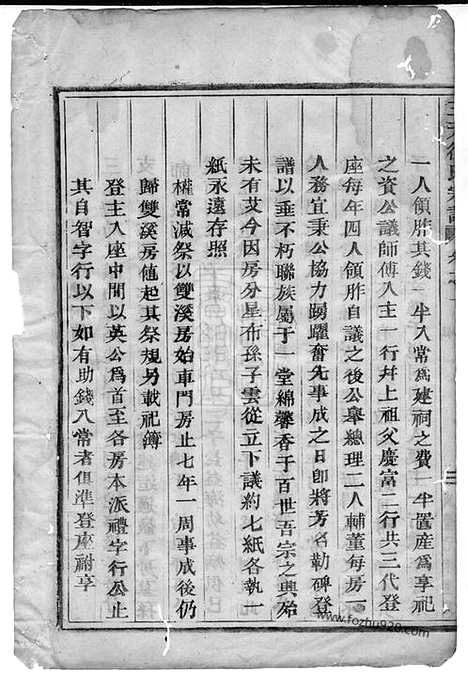 一人領胙其錢一半入常爲建祠之費一半置產爲享祀
之資公議師傅入主一行幷上祖父慶富二行共三代登
座每年四人領胙自議之後公舉總理二人輔董每房一
人務宜秉公協力踴躍奮先事成之日卽將芳名勒碑登
譜以垂不朽聯族屬于一堂綿馨香于百世吾宗之興殆
未有艾今因房分星布孫子雲從立下議約七紙各執一
紙永遠存照
權常減祭以雙溪房始車門房止七年一周事成後仍
歸雙溪房値起其祭規另載祀簿
登主入座中間以英公爲首至各房本派禮字行公止
其自智字行以下如有助錢入常者俱準登座祔享
www.fozhu920.com